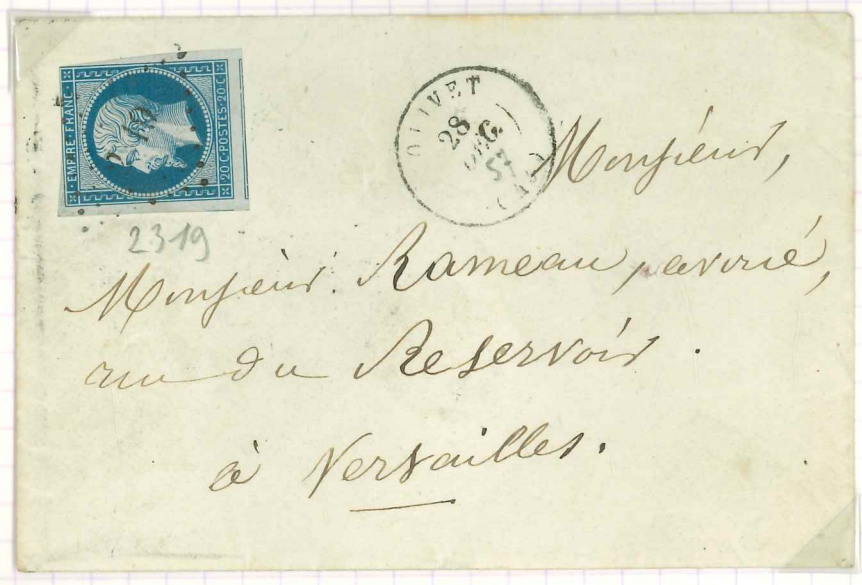 EMPIRE·FRANC·
20·C·POSTES·20·C·
OLIVET
28
DEC
57
2319
Monsieur,
Monsieur Rameau, avoué,
rue du Reservoir.
à Versailles.